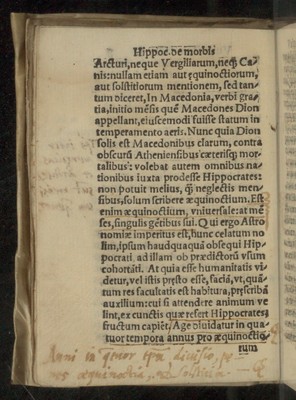 Hippoc. de morbis
Arcturi, neque Vergiliarum, neq; Ca-
nis: nullam etiam aut æquinoctiorum,
aut solstitiorum mentionem, sed tan-
tum diceret, In Macedonia, verbi gra-
tia, initio mēsis quē Macedones Dion
appellant, eiuscemodi fuisse statum in
temperamento aeris. Nunc quia Dion
solis est Macedonibus clarum, contra
obscurū Atheniensib' cæterisq; mor-
talibus: volebat autem omnibus na-
tionibus iuxta prodesse Hippocrates:
non potuit melius, q̄ neglectis men-
sibus, solum scribere æquinoctium. Est
enim æquinoctium, vniuersale: at mē
ses, singulis gētibus sui. Qui ergo Astro
nomiæ imperitus est, hunc celatum no
lim, ipsum haudquaquā obsequi Hip-
pocrati ad illam ob prædictorū vsum
cohortāti. At quia esse humanitatis vi
detur, vel istis præsto esse, faciā, vt, quā-
tum res facultatis est habitura, præsribā
auxilium: cui si attendere animum ve
lint, ex cunctis quæ refert Hippocrates
fructum capiēt. Age diuidatur in qua-
tuor tempora annus pro æquinoctio
rum
Anni in